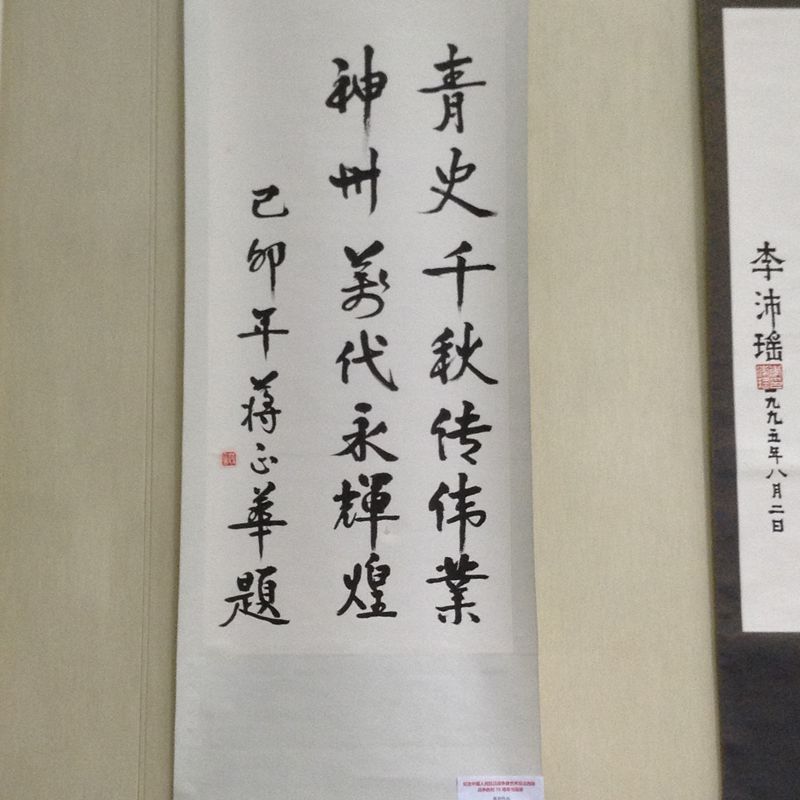 青史千秋传伟業
神州萬代永輝煌
己卯年蒋正華题
李沛瑶
一九九五年八月二日